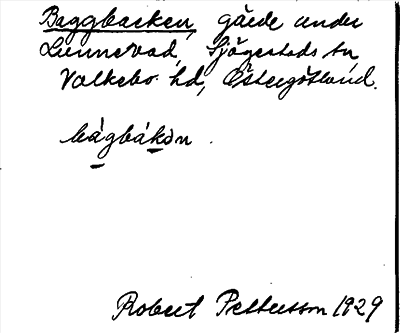 Baggbacken, gärde under
Lunnevad, Sjögestads sn
Valkebo hd, Östergötland.
bágbákən.
Robert Pettersson 1929